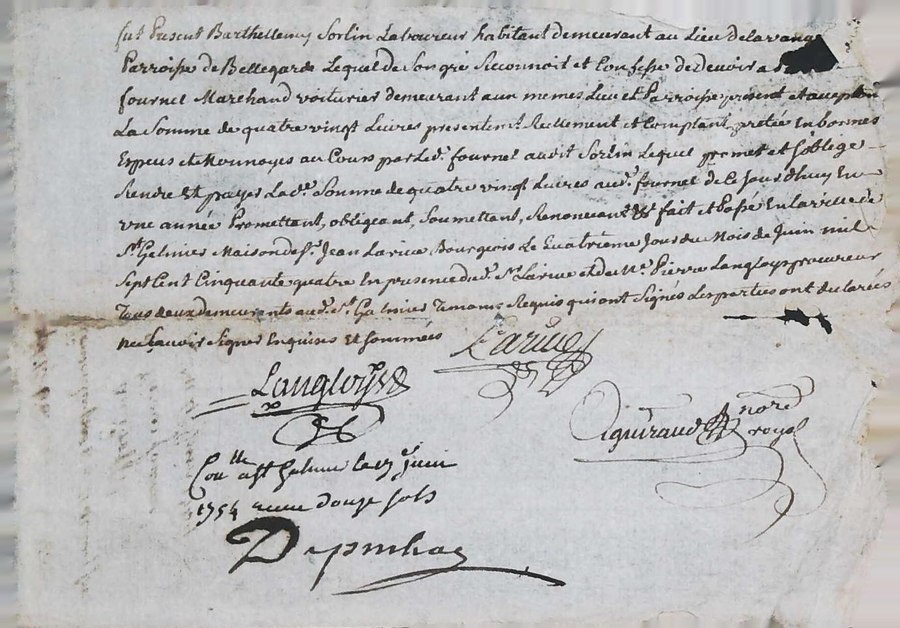 fut Present Barthellemy Sorlin Laboureur habitant demeurant au Lieu de Lavange
Parroisse de Bellegarde Lequel de Son gré Reconnoit et Confesse de devoir a
fournel Marchand voiturier demeurant aux memes Lieu et Parroisse present et acceptant
La Somme de quatre vingt Livres presentemt Reellement et Comptant pretée En bonnes
Especes et Monnoyes au Cours par Led. fournel audit Sorlin Lequel promet et s'oblige
Rendre Et payer Lade Somme de quatre vingt Livres aud. fournel de Ce Jourdhuy En
une année Promettant, obligeant, Soumettant, Renonceant &a fait et Passé En La ville de
St. Galmier Maison de Sr. Jean Larive Bourgeois Le Quatrieme Jour du Mois de Juin mil
Sept Cent Cinquante quatre En presence dud. Sr. Larive et de Me. Pierre Langloys procureur
Tous deux demeurants aud. St. Galmier Temoins Requis qui ont Signés Les parties ont declarées
ne Sçavoir Signer Enquises Et Sommées
Larive
Langloys
Cigniraud Nore
royal
Con.lle a St Galmier le 17 juin
1754 recu douze sols